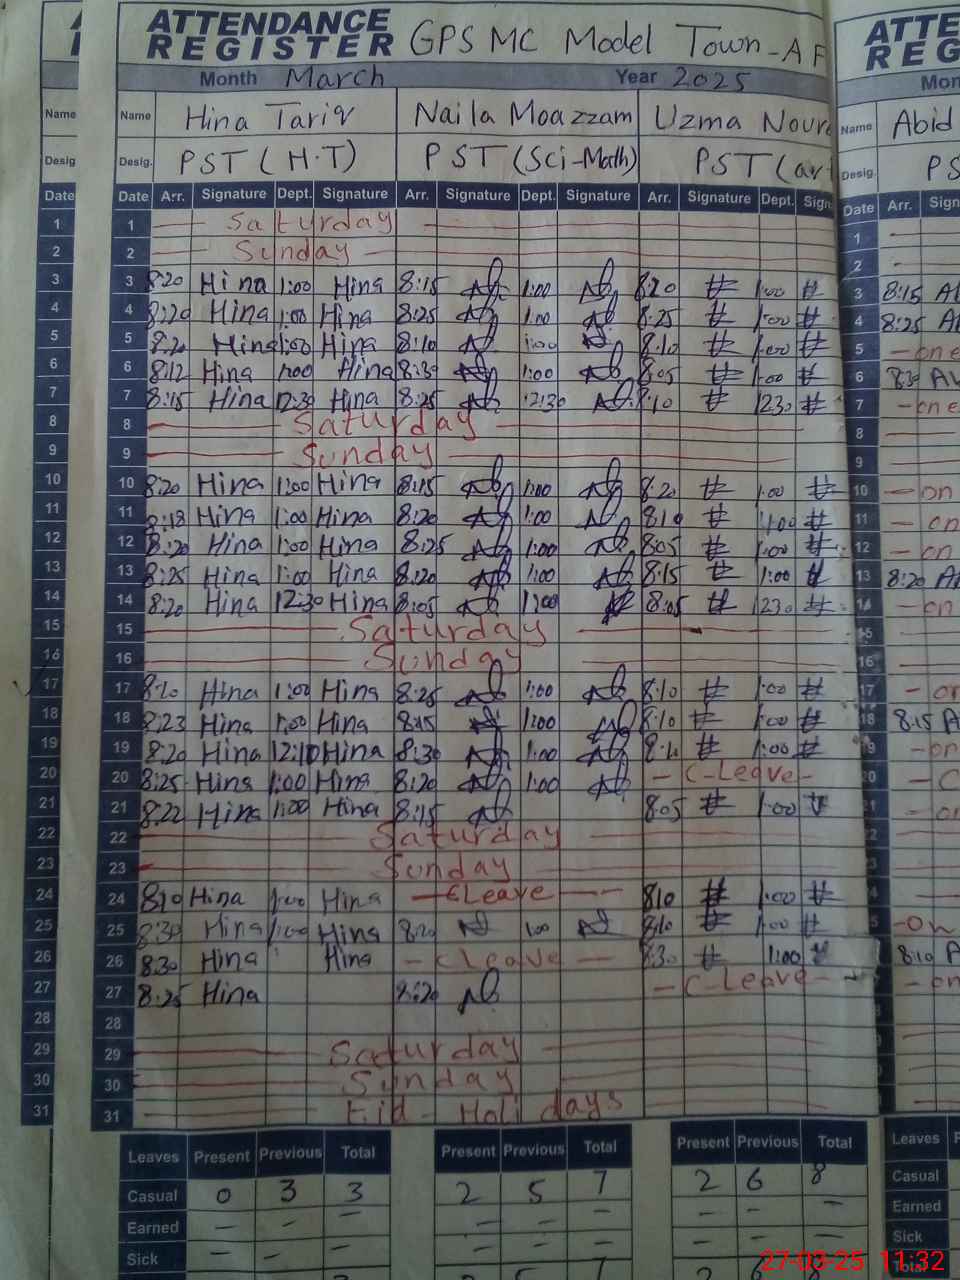 ATTENDANCE
REGISTER GPS MC Model Town-AF
Month March Year 2025
Name Hina Tariq Naila Moazzam Uzma Noure
Desig. PST (H.T) PST (Sci-Math) PST (art
Date Arr. Signature Dept. Signature Arr. Signature Dept. Signature Arr. Signature Dept. Sign
1 Saturday
2 Sunday
3 8:20 Hina 1:00 Hina 8:15 1:00 8:20 1:00
4 8:20 Hina 1:00 Hina 8:25 1:00 8:25 1:00
5 8:20 Hina 1:00 Hina 8:10 1:00 8:10 1:00
6 8:12 Hina 1:00 Hina 8:30 1:00 8:05 1:00
7 8:15 Hina 12:30 Hina 8:25 12:30 8:10 1230
8 Saturday
9 Sunday
10 8:20 Hina 1:00 Hina 8:15 1:00 8:20 1:00
11 8:18 Hina 1:00 Hina 8:20 1:00 810 1:00
12 8:20 Hina 1:00 Hina 8:25 1:00 8:05 1:00
13 8:25 Hina 1:00 Hina 8:20 1:00 8:15 1:00
14 8:20 Hina 12:30 Hina 8:05 8:05 1230
15 Saturday
16 Sunday
17 8:10 Hina 1:00 Hina 8:25 1:00 8:10 1:00
18 8:23 Hina 1:00 Hina 8:15 1:00 8:10 1:00
19 8:20 Hina 12:10 Hina 8:30 1:00 1:00
20 8:25 Hina 1:00 Hina 8:20 1:00 - C-Leave-
21 8:22 Hina 1:00 Hina 8:15 8:05 1:00
22 Saturday
23 Sunday
24 810 Hina 1:00 Hina - C Leave -- 810 1:00
25 8:30 Hina 1:00 Hina 8:20 100 8:10 1:00
26 8:30 Hina Hina - C Leave -- 8:30 1:00
27 8:25 Hina 8:20 - C-Leave-
28
29 Saturday
30 Sunday
31 Eid - Holi days
Leaves Present Previous Total Present Previous Total Present Previous Total
Casual 0 3 3 2 5 7 2 6 8
Earned - - - - - - - - -
Sick
27-03-25 11:32
ATTE
REG
Mon
Name Abid
Desig. PS
Date Arr. Sign
1
2
3 8:15
4 8:25
5
6 8:30
7
8
9
10 - on
11 - on
12 - on
13 8:20
14 - on
15
16
17
18 8:15
- C
26 8:10
Leaves P
Casual
Earned
Sick
Total
Name
Desig
Date
1
2
3
4
5
6
7
8
9
10
11
12
13
14
15
16
17
18
19
20
21
22
23
24
25
26
27
28
29
30
31